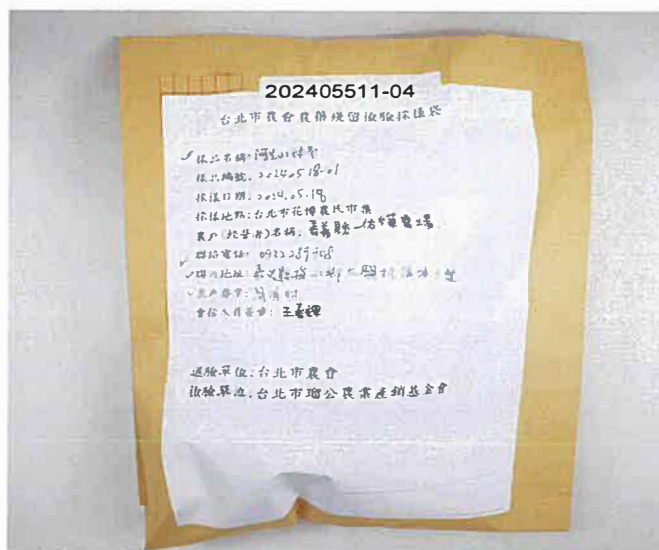 202405511-04
台北市農會農藥殘留檢驗採樣袋
樣品名稱:阿里山
樣品編號:20240518-01
採樣日期:2024.05.18
採樣地點:台北市花博農民市集
農戶(經營者)名稱:嘉義縣
聯絡電話:
聯絡地址:嘉义縣
農戶簽章:
會採人員簽章:王春輝
送驗單位:台北市農會
檢驗單位:台北市瑠公農業產銷基金會